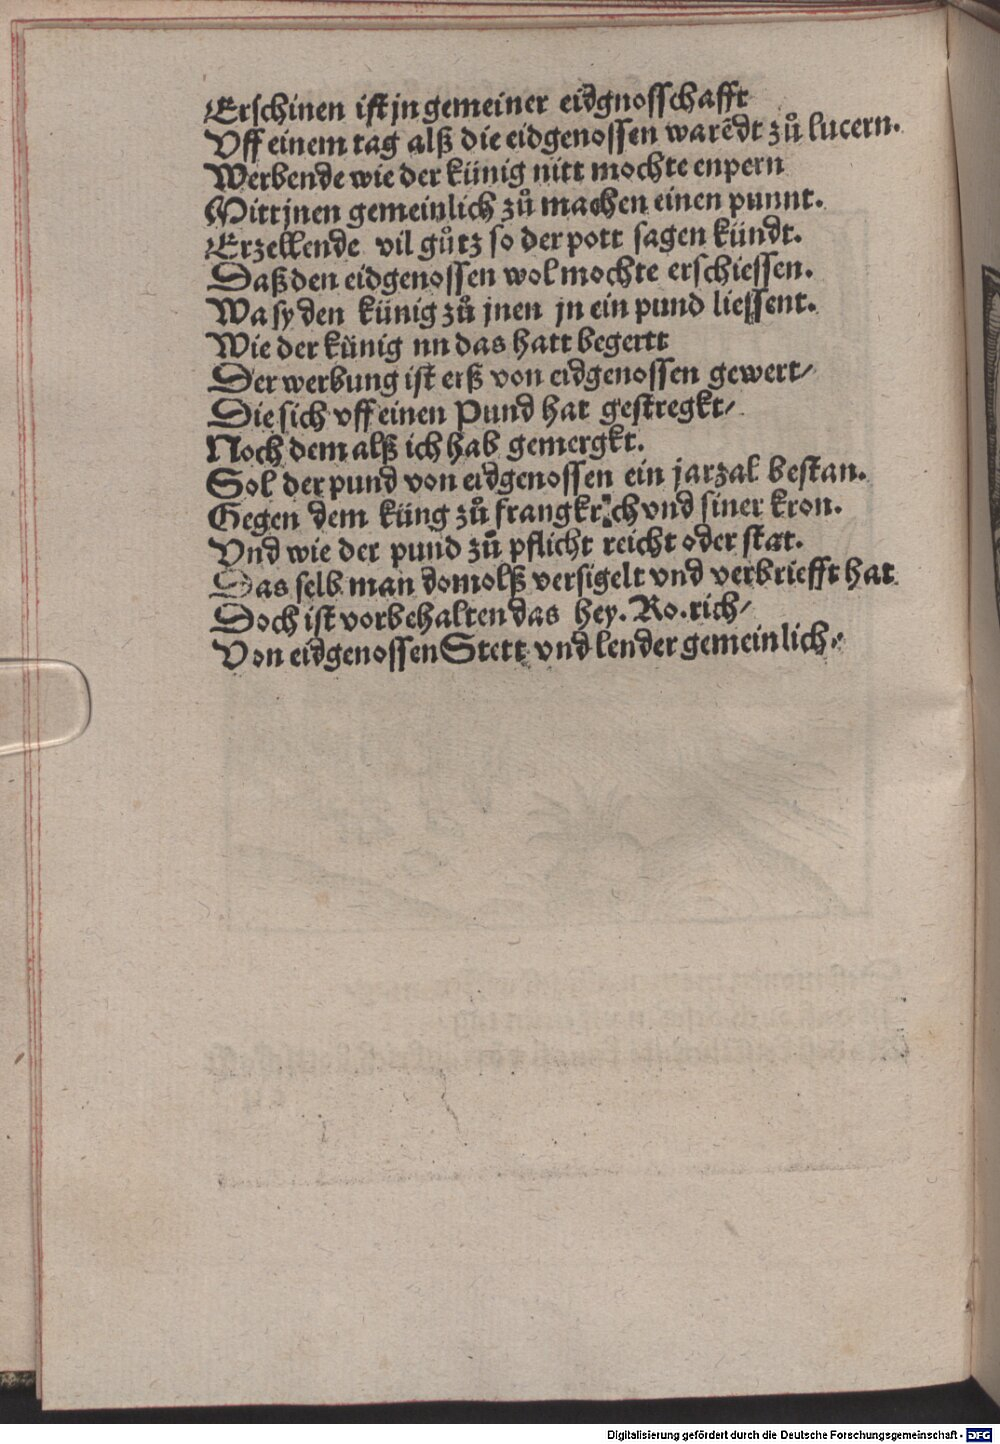 Erschinen ist jn gemeiner eidgnosschafft
Vff einem tag alß die eidgenossen warēdt zů lucern.
Werbende wie der künig nitt mochte enpern
Mitt jnen gemeinlich zů machen einen punnt.
Erzellende vil gůtz so der pott sagen kündt.
Daß den eidgenossen wol mochte erschiessen.
Wa sy den künig zů jnen jn ein pund liessent.
Wie der künig nn das hatt begertt
Der werbung ist erß von eidgenossen gewert/
Die sich vff einen Pund hat gestregkt/
Noch dem alß ich hab gemergkt.
Sol der pund von eidgenossen ein jarzal bestan.
Gegen dem küng zů frangkrich vnd siner kron.
Vnd wie der pund zů pflicht reicht oder stat.
Das selb man domolß versigelt vnd verbriefft hat
Doch ist vorbehalten das hey. Ro. rich/
Von eidgenossen Stett vnd lender gemeinlich.
Digitalisierung gefördert durch die Deutsche Forschungsgemeinschaft - DFG